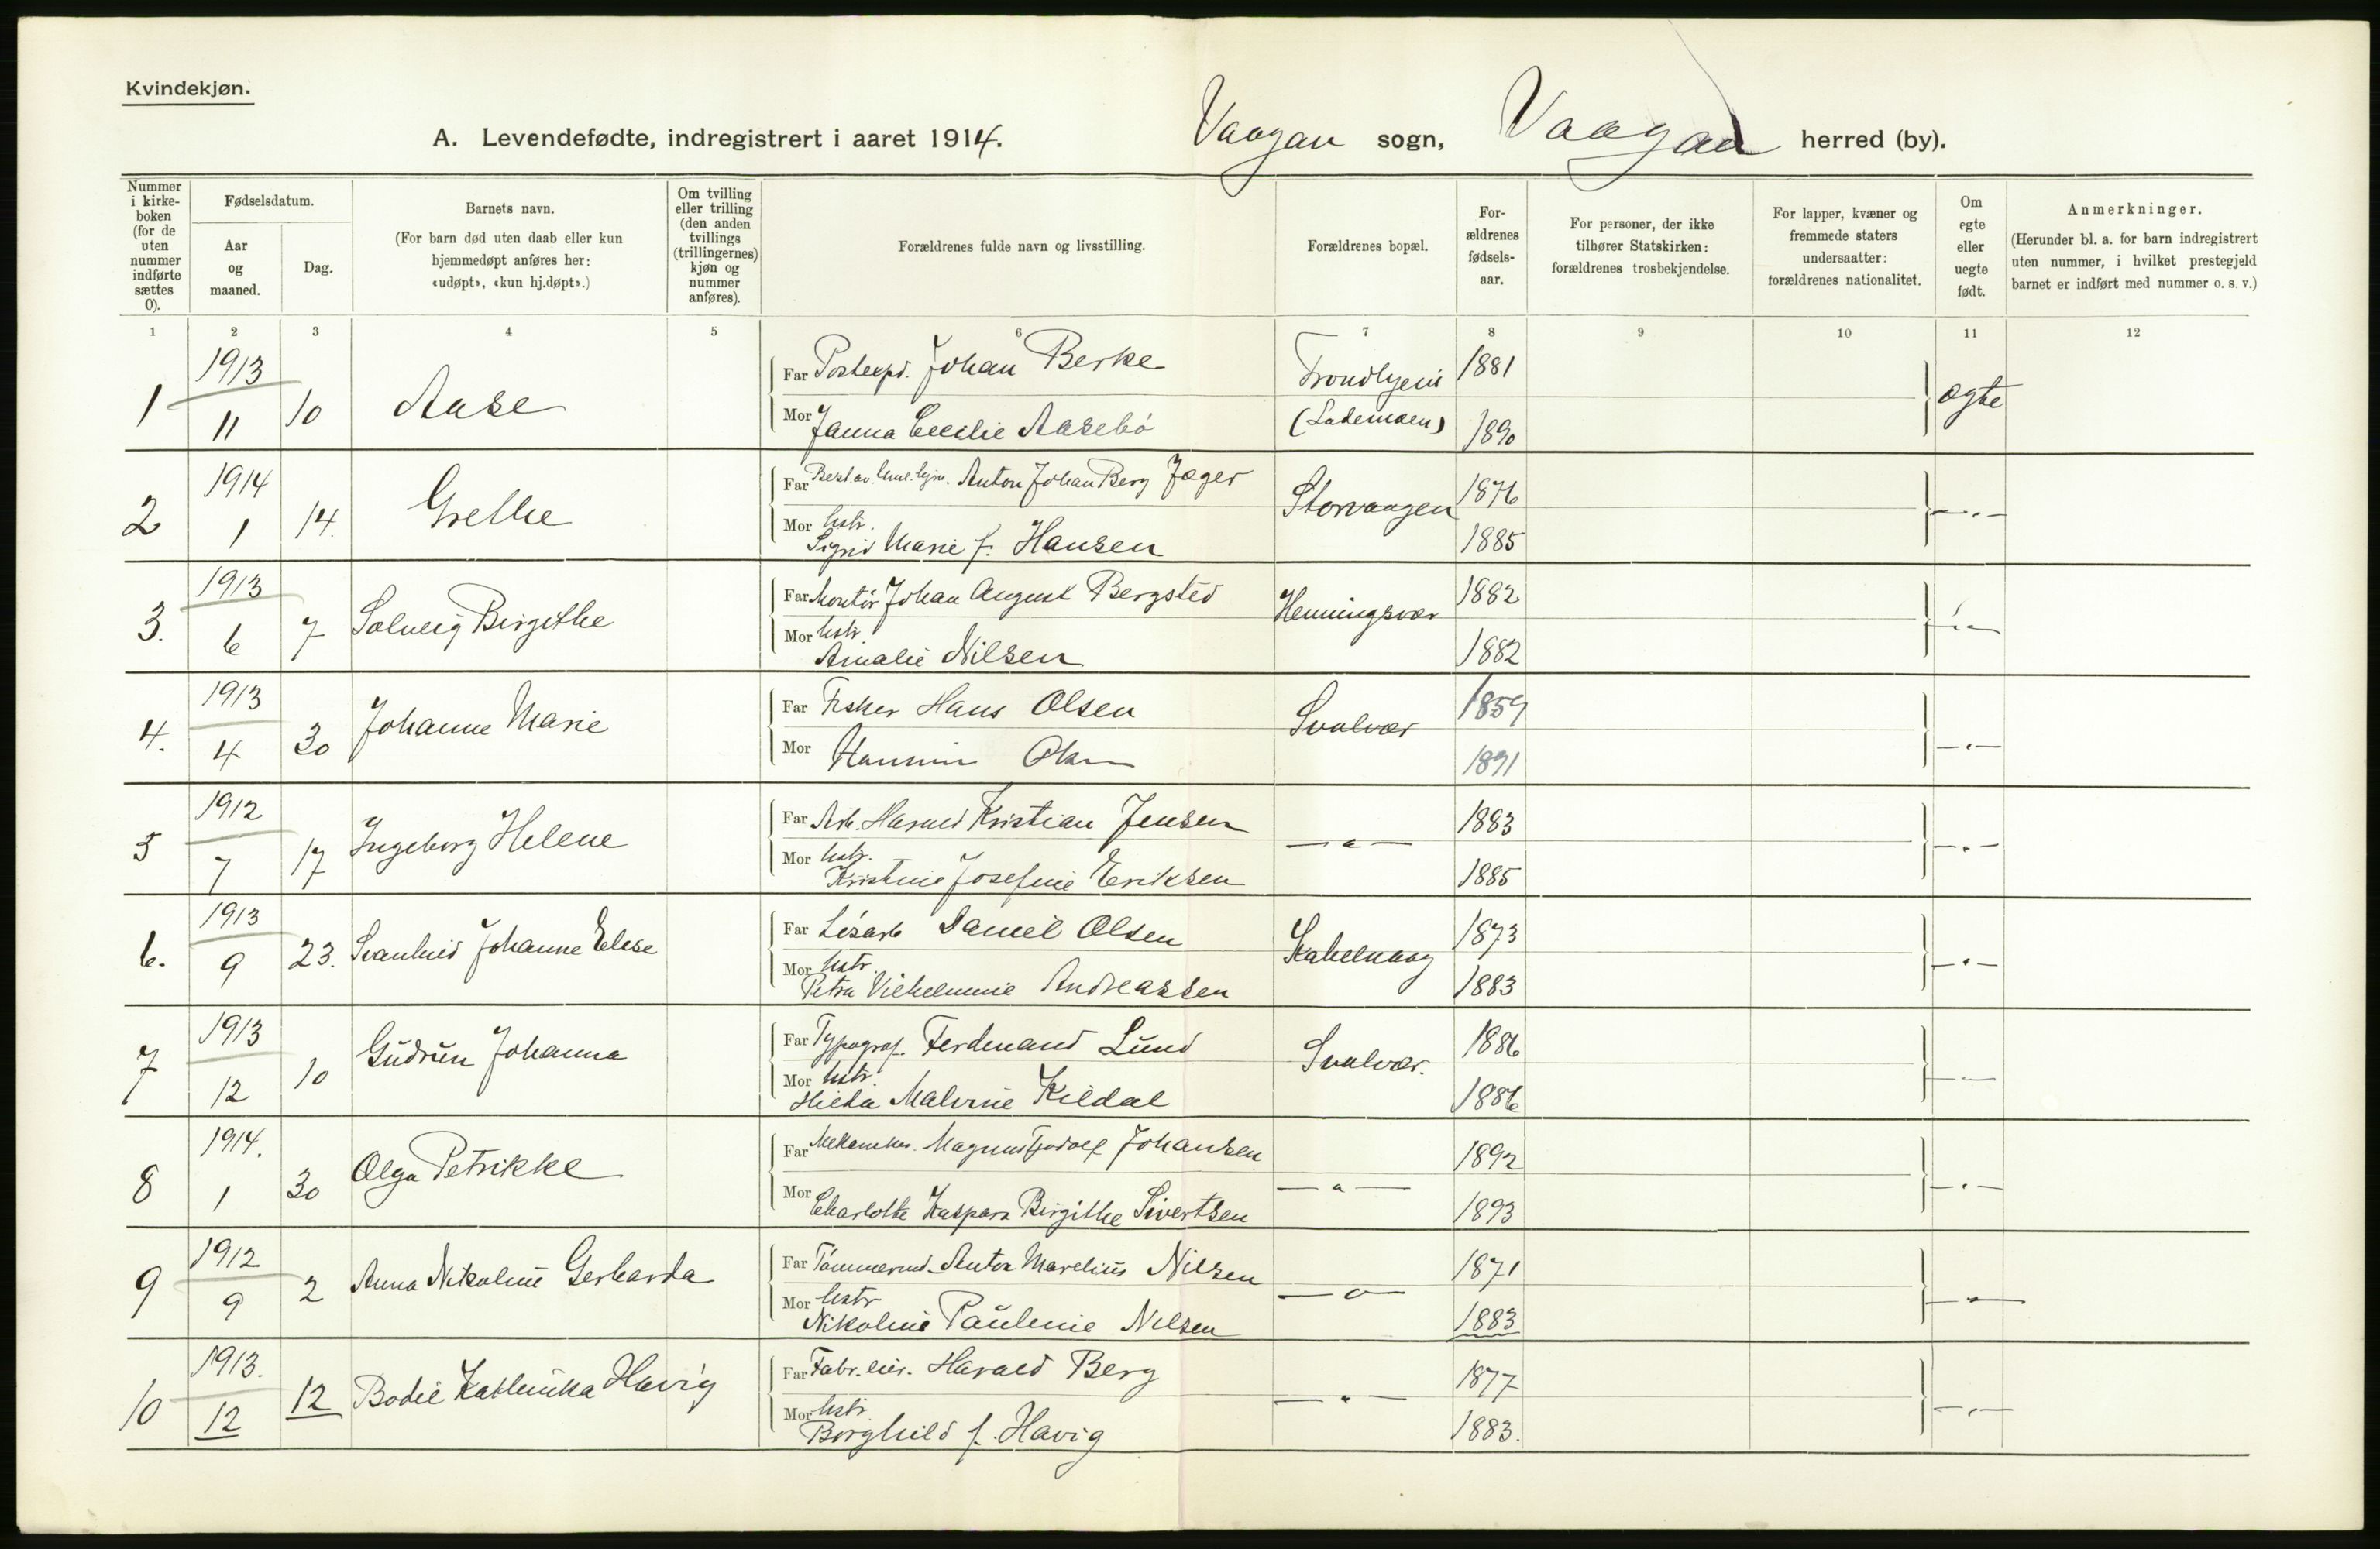 Kvindekjøn.
A. Levendefødte, indregistrert i aaret 1914. Vaagan sogn, Vaagan herred (by).
Nummer i kirkeboken (for de uten nummer indførte sættes 0).
Fødselsdatum.
Aar og maaned.
Dag.
Barnets navn.
(For barn død uten daab eller kun hjemmedøpt anføres her: «udøpt», «kun hj.døpt».)
Om tvilling eller trilling (den anden tvillings (trillingernes) kjøn og nummer anføres).
Forældrenes fulde navn og livsstilling.
Forældrenes bopæl.
Forældrenes fødselsaar.
For personer, der ikke tilhører Statskirken: forældrenes trosbekjendelse.
For lapper, kvæner og fremmede staters undersaatter: forældrenes nationalitet.
Om egte eller uegte født.
Anmerkninger.
(Herunder bl. a. for barn indregistrert uten nummer, i hvilket prestegjeld barnet er indført med nummer o. s. v.)
1 2 3 4 5 6 7 8 9 10 11 12
1 1913 11 10 Aase Far Postexpd. Johan Berke Trondhjem 1881 ægte
Mor Janna Cecilie Aasebö (Lademoen) 1890
2 1914 1 14. Grethe Far Anton Johan Berg Jæger Storvaagen 1876 —"—
Mor hstr. Sigrid Marie f. Hansen 1885
3. 1913 6 7 Solveig Birgithe Far Montör Johan August Bergsted Henningsvær 1882 —"—
Mor hstr. Amalie Nilsen 1882
4. 1913 4 30 Johanne Marie Far Fisker Hans Olsen Svolvær 1859 —"—
Mor Hansine Olsen 1891
5 1912 7 17 Ingeborg Helene Far Arb. Harald Kristian Jensen —"— 1883 —"—
Mor hstr. Kristine Josefine Eriksen 1885
6. 1913 9 23. Svanhild Johanne Elise Far Lösarb Daniel Olsen Kabelvaag 1873 —"—
Mor hstr. Petra Vilhelmine Andreassen 1883
7 1913 12 10 Gudrun Johanna Far Typograf. Ferdinand Lund Svolvær. 1886 —"—
Mor hstr. Hilda Malvine Kildal 1886
8 1914. 1 30 Olga Petrikke Far Mekaniker. Magnus Fjodolf Johansen —"— 1892 —"—
Mor Charlotte Kaspara Birgithe Sivertsen 1893
9 1912 9 2 Anna Nikoline Gerharda Far Tömmermd. Anton Marelius Nilsen —"— 1871 —"—
Mor hstr Nikoline Pauline Nilsen 1883
10 1913. 12 12 Bodil Kathinka Havig Far Fabr.eier. Harald Berg —"— 1877 —"—
Mor hstr. Borghild f. Havig 1883.